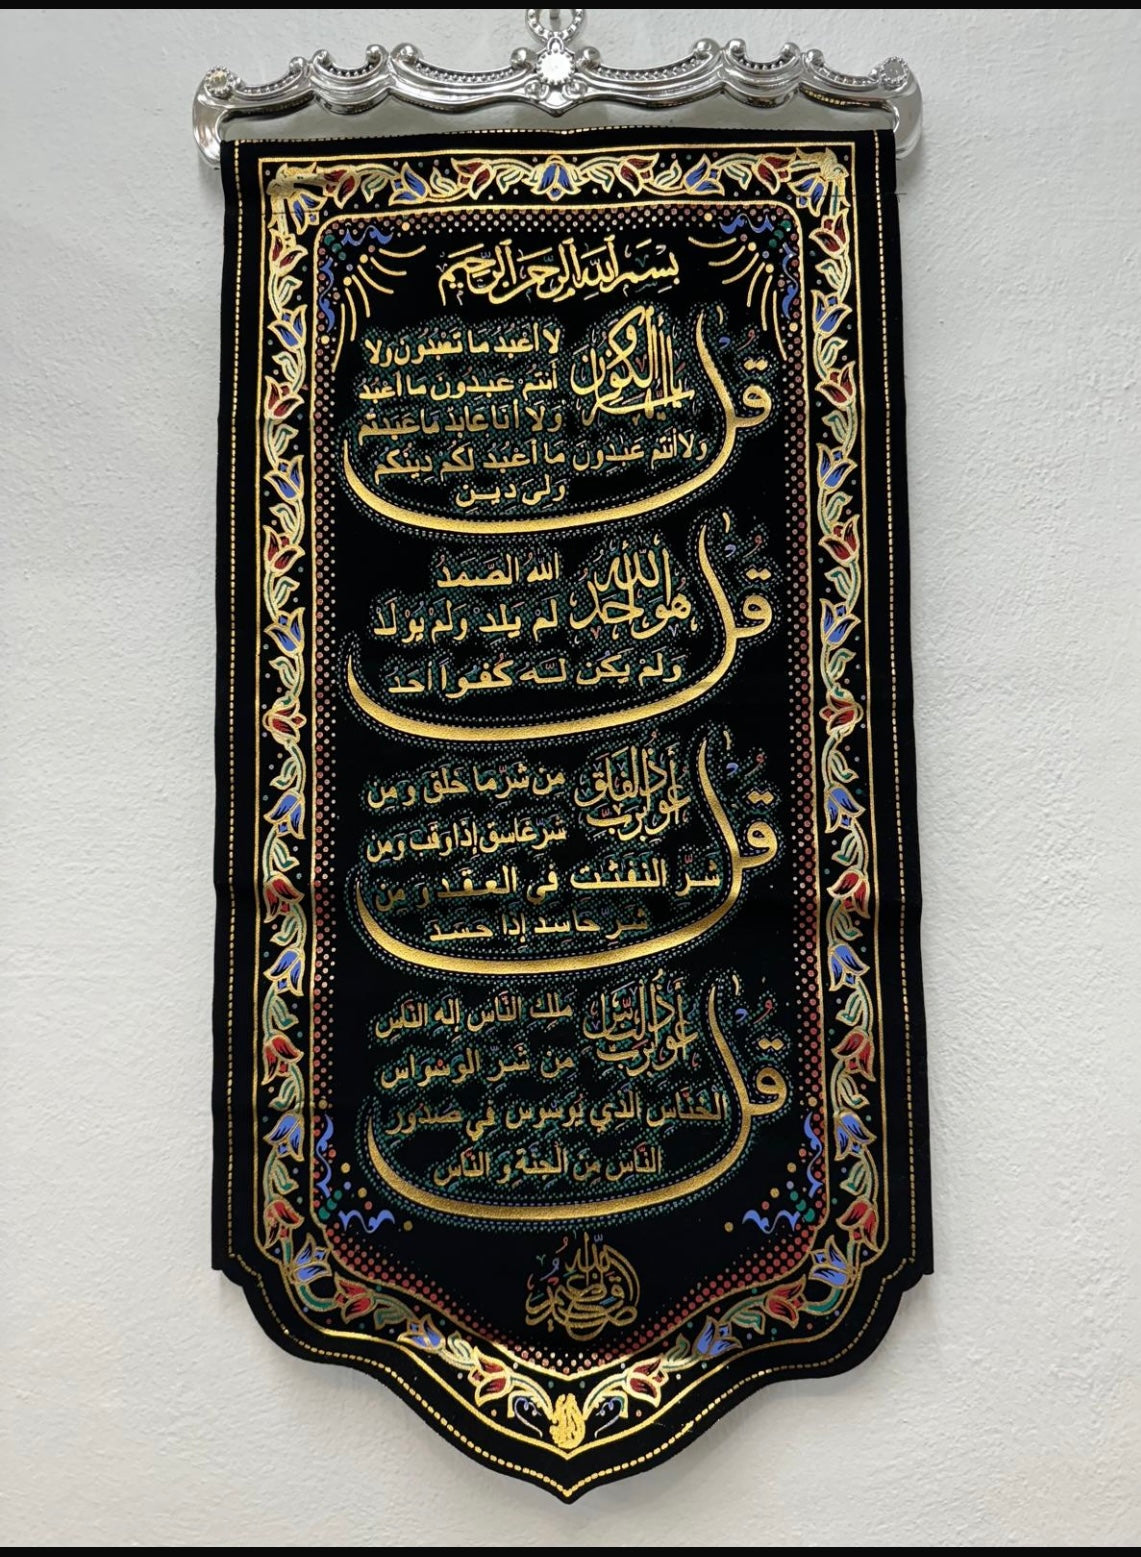 بسم الله الرحمن الرحيم
قل يا أيها الكفرون
لا أعبد ما تعبدون ولا
أنتم عبدون ما أعبد
ولا أنا عابد ما عبدتم
ولا أنتم عبدون ما أعبد لكم دينكم
ولي دين
قل هو الله أحد
الله الصمد
لم يلد ولم يولد
ولم يكن له كفوا أحد
قل أعوذ برب الفلق
من شر ما خلق و من
شر غاسق إذا وقب ومن
شر النفثت في العقد و من
شر حاسد إذا حسد
قل أعوذ برب الناس
ملك الناس إله الناس
من شر الوسواس
الخناس الذي يوسوس في صدور
الناس من الجنة و الناس
صدق الله العظيم